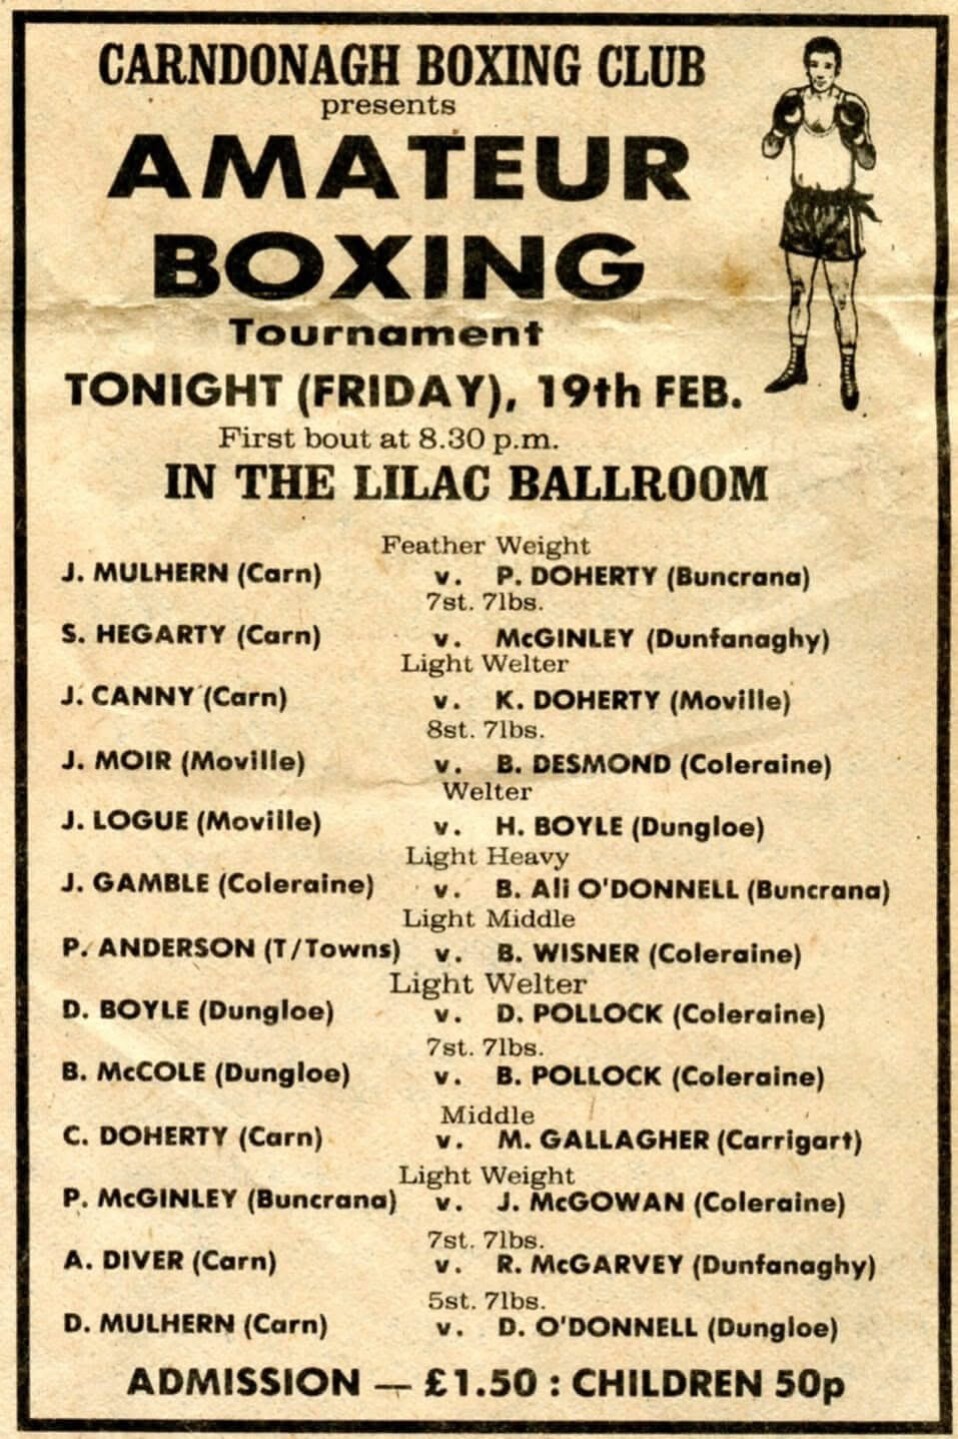 CARNDONAGH BOXING CLUB
presents
AMATEUR
BOXING
Tournament
TONIGHT (FRIDAY), 19th FEB.
First bout at 8.30 p.m.
IN THE LILAC BALLROOM
Feather Weight
J. MULHERN (Carn) v. P. DOHERTY (Buncrana)
7st. 7lbs.
S. HEGARTY (Carn) v. McGINLEY (Dunfanaghy)
Light Welter
J. CANNY (Carn) v. K. DOHERTY (Moville)
8st. 7lbs.
J. MOIR (Moville) v. B. DESMOND (Coleraine)
Welter
J. LOGUE (Moville) v. H. BOYLE (Dungloe)
Light Heavy
J. GAMBLE (Coleraine) v. B. Ali O'DONNELL (Buncrana)
Light Middle
P. ANDERSON (T/Towns) v. B. WISNER (Coleraine)
Light Welter
D. BOYLE (Dungloe) v. D. POLLOCK (Coleraine)
7st. 7lbs.
B. McCOLE (Dungloe) v. B. POLLOCK (Coleraine)
Middle
C. DOHERTY (Carn) v. M. GALLAGHER (Carrigart)
Light Weight
P. McGINLEY (Buncrana) v. J. McGOWAN (Coleraine)
7st. 7lbs.
A. DIVER (Carn) v. R. McGARVEY (Dunfanaghy)
5st. 7lbs.
D. MULHERN (Carn) v. D. O'DONNELL (Dungloe)
ADMISSION — £1.50 : CHILDREN 50p